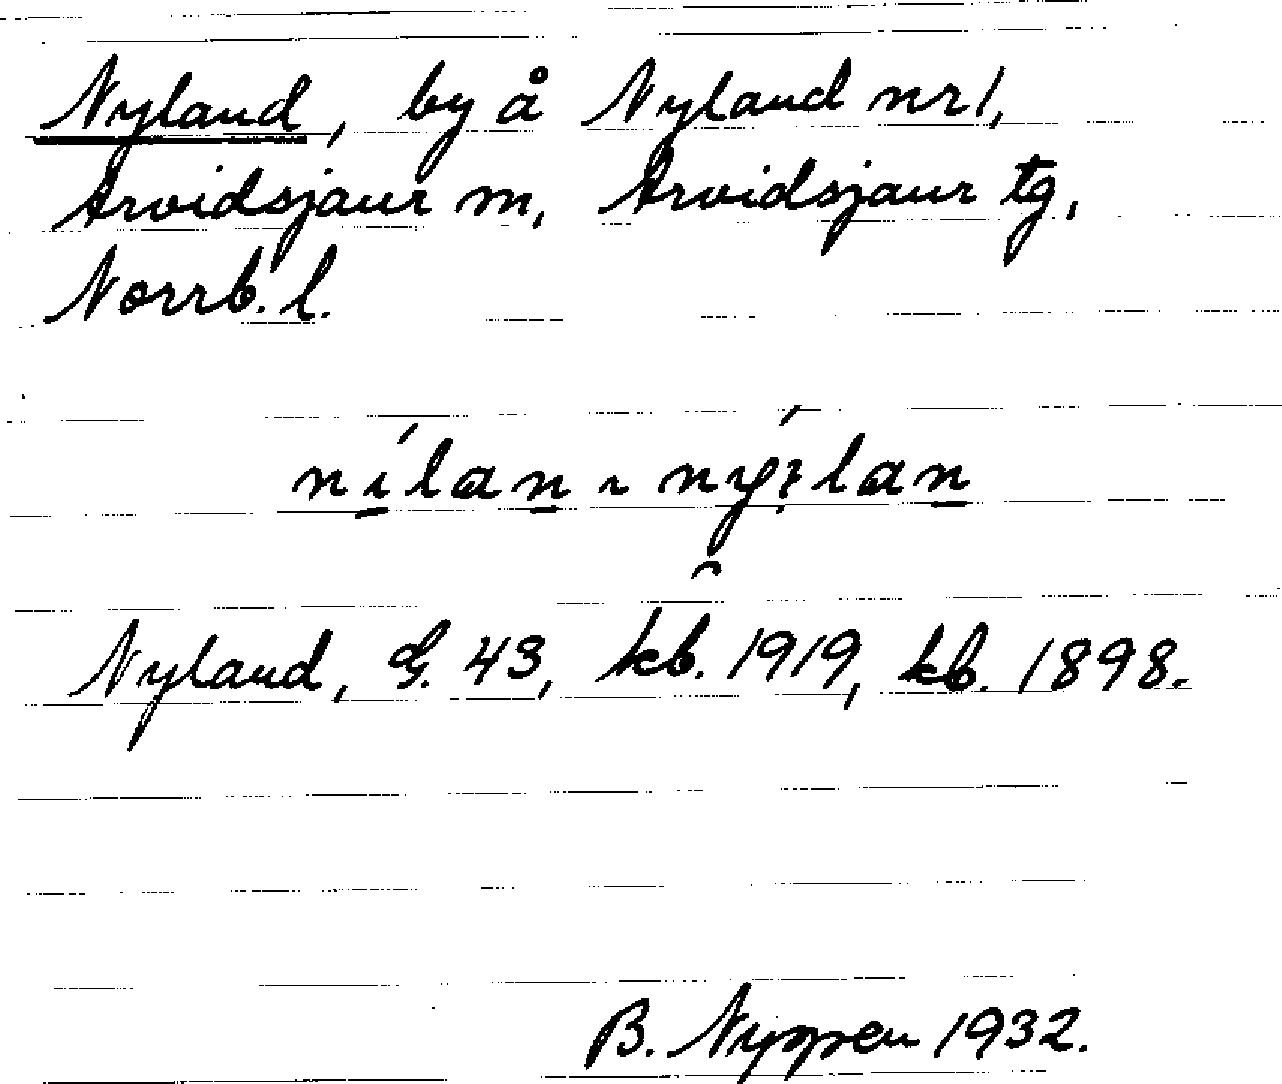 Nyland, by å Nyland nr 1,
Arvidsjaur sn, Arvidsjaur tg,
Norrb. l.
Nyland, G. 43, kb. 1919, kb. 1898.
B. Nyppen 1932.